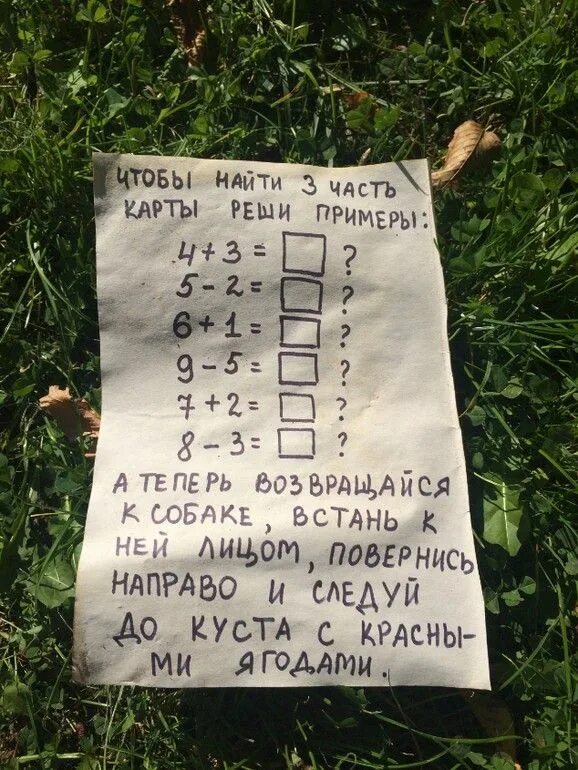 ЧТОБЫ НАЙТИ 3 ЧАСТЬ
КАРТЫ РЕШИ ПРИМЕРЫ:
4+3=□ ?
5-2=□ ?
6+1=□ ?
9-5=□ ?
7+2=□ ?
8-3=□ ?
А ТЕПЕРЬ ВОЗВРАЩАЙСЯ
К СОБАКЕ, ВСТАНЬ К
НЕЙ ЛИЦОМ, ПОВЕРНИСЬ
НАПРАВО И СЛЕДУЙ
ДО КУСТА С КРАСНЫ-
МИ ЯГОДАМИ.